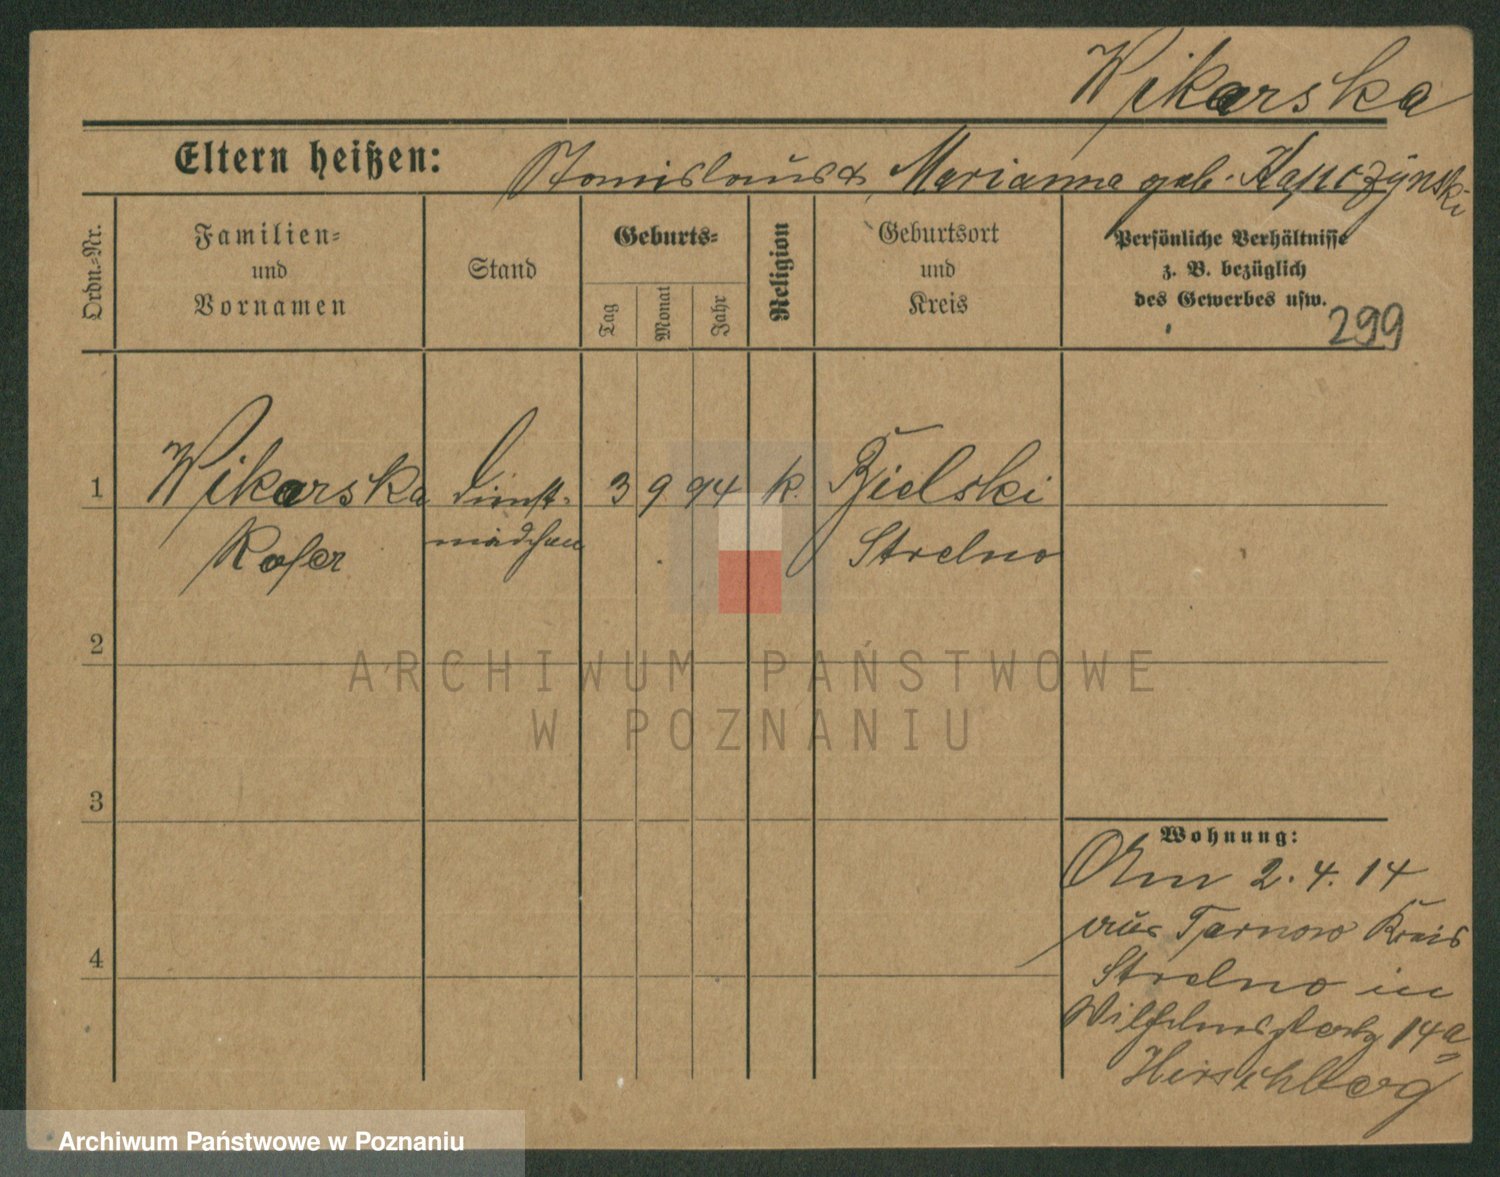 Wikarska
Eltern heißen: Stanislaus & Marianna geb. Kapczynski
Ordn.-Nr.
Familien-
und
Vornamen
Stand
Geburts-
Tag
Monat
Jahr
Religion
Geburtsort
und
Kreis
Persönliche Verhältnisse
z. B. bezüglich
des Gewerbes usw.
299
1 Wikarska Dienst- 3 9 94 k. Bielski
mädchen Strelno
2
ARCHIWUM PAŃSTWOWE
W POZNANIU
3
Wohnung:
Am 2.4.14
aus Tarnowo Kreis
4
Strelno in
Wilhelmsplatz 14a
Hirschberg
Archiwum Państwowe w Poznaniu